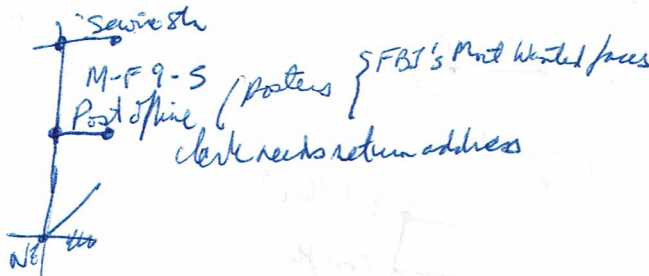 M-F 9-5
Post office (posters { FBI's Most Wanted faces
clerk needs return address